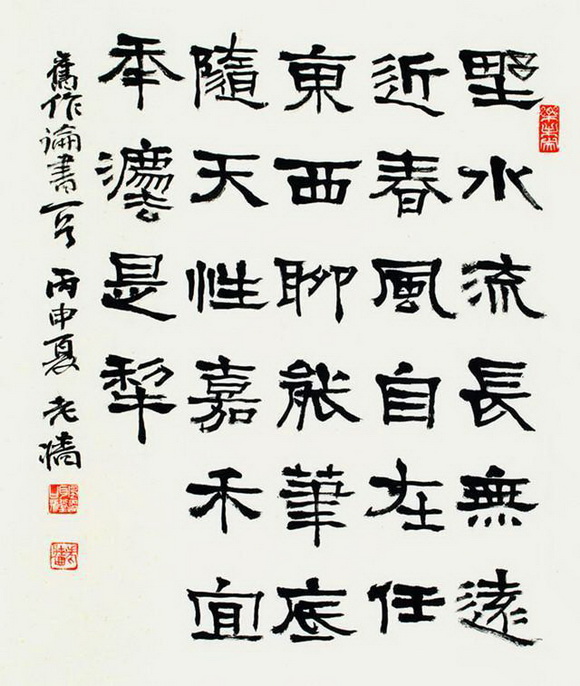 野水流長無遠
近春風自在任
東西聊能筆底
隨天性嘉禾宜
年灋是犁
舊作論書一 丙申夏 老